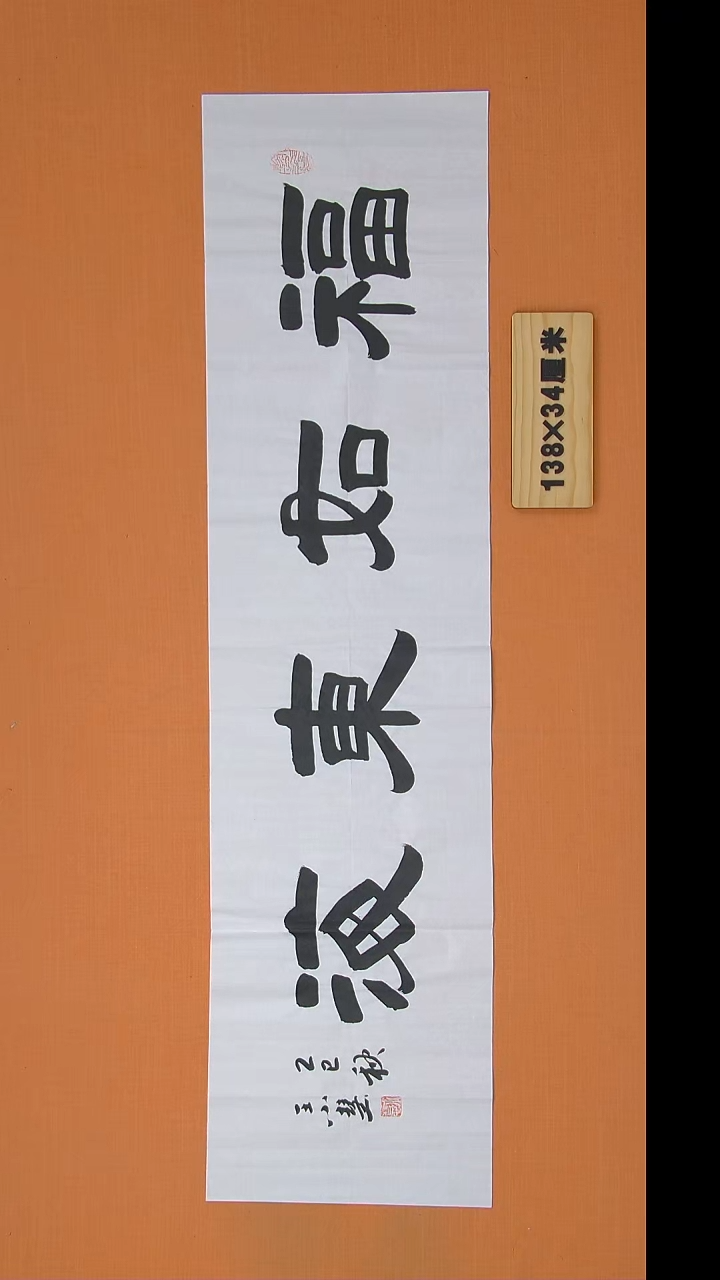 福如東海
乙巳秋
王小慧
138×34厘米